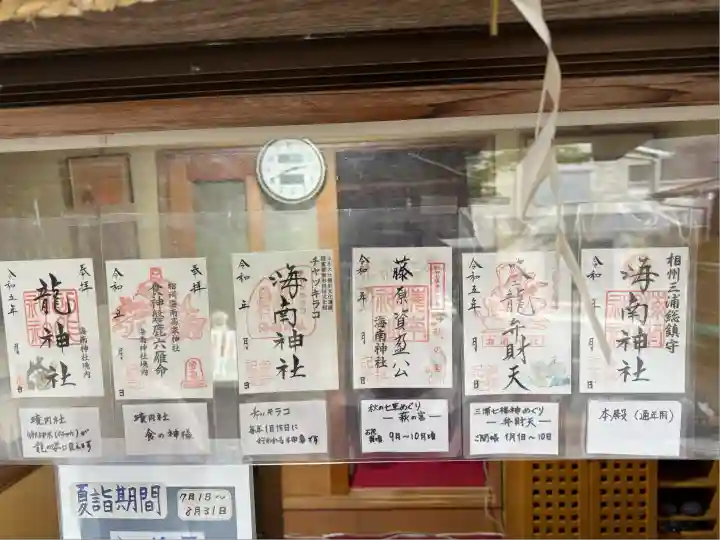 相州三浦総鎮守
海南神社
令和五年 月 日
本殿(通年用)
龍弁財天
令和五年 月 日
三浦七福神めぐり
ー弁財天ー
ご開帳 1月1日〜10日
藤原資盈公
海南神社
令和 年 月 日
秋の七草めぐり
ー萩の宮ー
9月〜10月頃
チャッキラコ
海南神社
令和 年 月 日
チャッキラコ
毎年1月15日に
奉拝
相州海南高家神社
食神磐鹿六雁命
海南神社境内
令和五 月 日
境内社
食の神様
奉拝
龍神社
海南神社境内
令和五年 月 日
境内社
夏詣期間
7月1日〜
8月31日